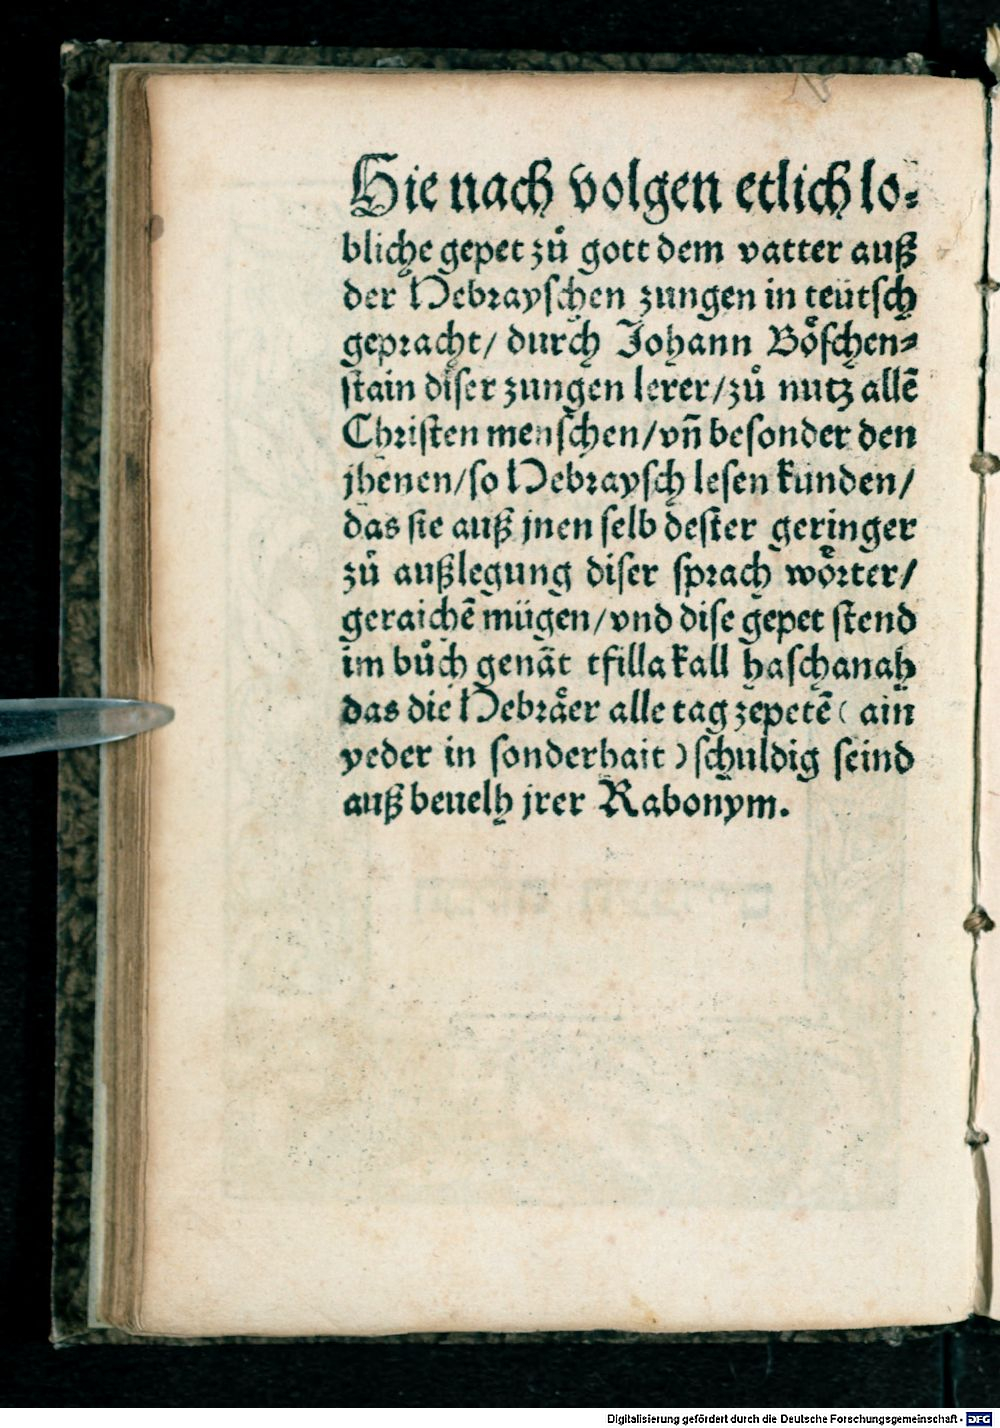 Hie nach volgen etlich lo⸗
bliche gepet zů gott dem vatter auß
der Hebrayschen zungen in teütsch
gepracht/ durch Johann Boͤschen⸗
stain diser zungen lerer/zů nutz allē
Christen menschen/vñ besonder den
jhenen/so Hebraysch lesen kunden/
das sie auß jnen selb dester geringer
zů außlegung diser sprach woͤrter/
geraichē mügen/vnd dise gepet stend
im bůch genāt tfilla kall haschanah
das die Hebraͤer alle tag zepetē ( ain
yeder in sonderhait ) schuldig seind
auß beuelh jrer Rabonym.
Digitalisierung gefördert durch die Deutsche Forschungsgemeinschaft - DFG